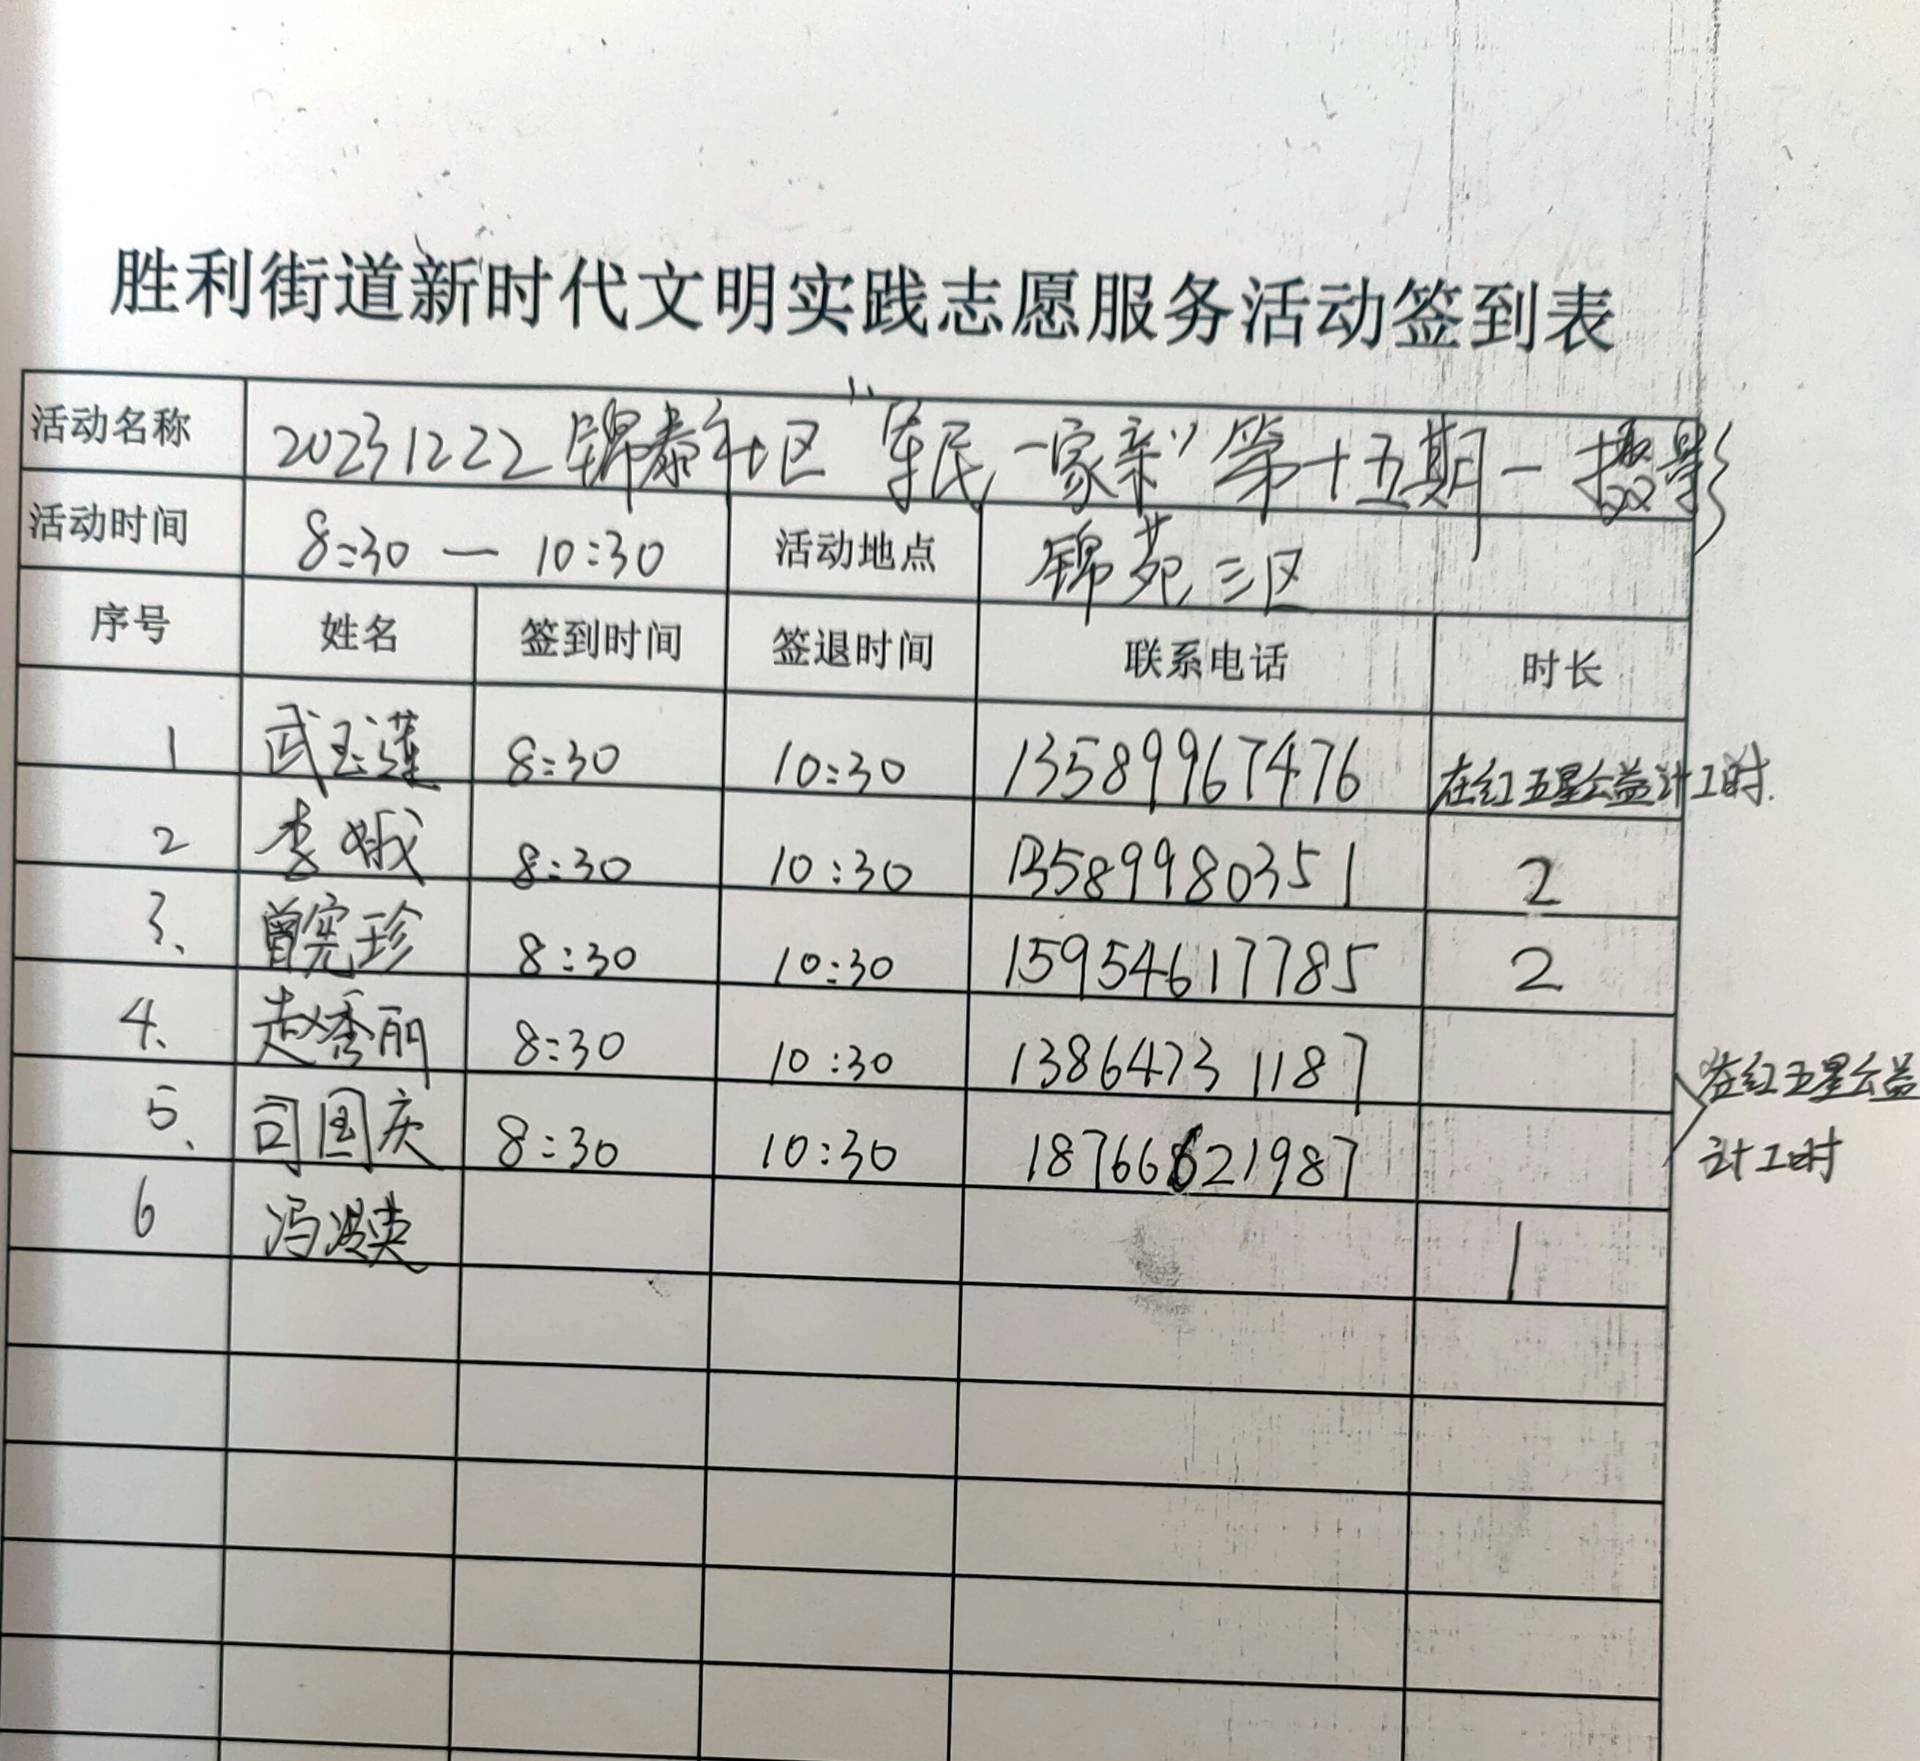 胜利街道新时代文明实践志愿服务活动签到表
活动名称 20231222锦泰社区“军民一家亲”第十五期-摄影
活动时间 8:30 — 10:30 活动地点 锦苑三区
序号 姓名 签到时间 签退时间 联系电话 时长
1 武玉莲 8:30 10:30 13589967476 在红五星公益计工时.
2 李娥 8:30 10:30 13589980351 2
3、 曾宪珍 8:30 10:30 15954617785 2
4、 赵秀丽 8:30 10:30 13864731187
在红五星公益
5、 司国庆 8:30 10:30
计工时
6 冯 英 1